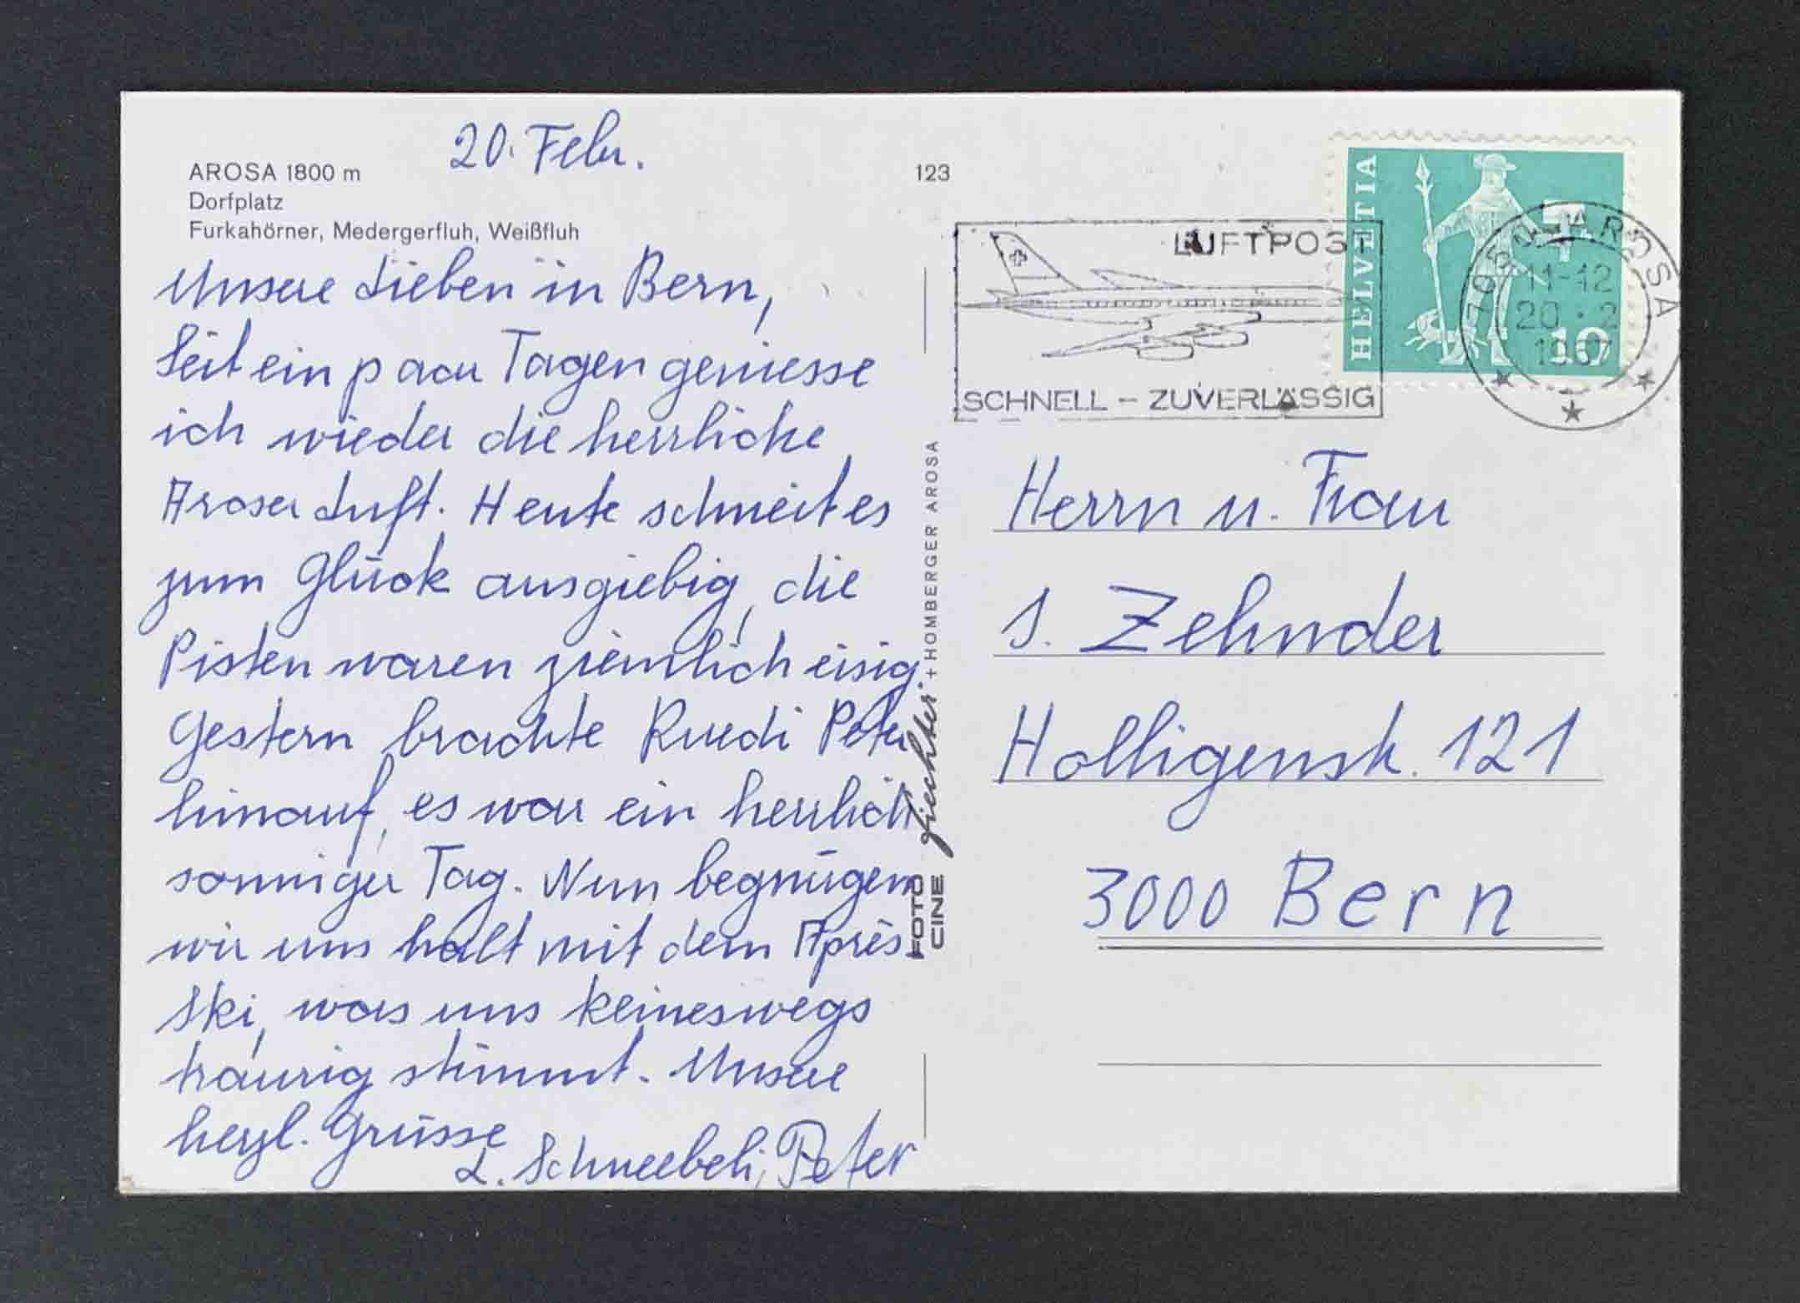 20. Febr.
AROSA 1800 m
Dorfplatz
Furkahörner, Medergerfluh, Weißfluh
Unsere Lieben in Bern,
Seit ein paar Tagen geniesse
ich wieder die herrliche
Aroser Luft. Heute schneit es
zum Glück ausgiebig, die
Pisten waren ziemlich eisig.
Gestern brachte Ruedi Peter
hinauf, es war ein herrlich
sonniger Tag. Nun begnügen
wir uns halt mit dem Après-
Ski, was uns keineswegs
traurig stimmt. Unsere
herzl. Grüsse
L. Schneebeli, Peter
123
FOTO
CINE
Fiechter + HOMBERGER AROSA
LUFTPOST
SCHNELL - ZUVERLÄSSIG
HELVETIA
10
7050 AROSA
11-12
20.2
1967
Herrn u. Frau
S. Zehnder
Holligenstr. 121
3000 Bern